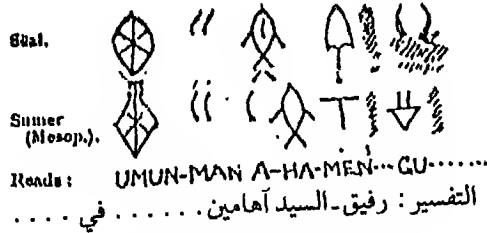 Sual.
Sumer
(Mesop.).
Reads: UMUN-MAN A-HA-MEN...GU.......
التفسير : رفيق-السيد آهامين . . . . . . في . . . .